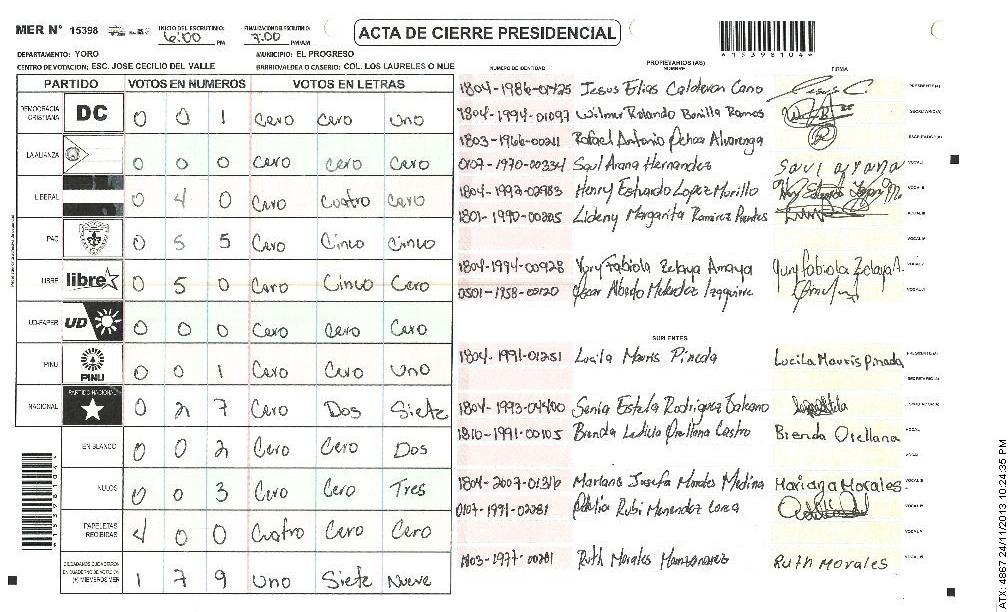 MER N° 15398 INICIO DEL ESCRUTINIO: 6:00 PM FINALIZACION DEL ESCRUTINIO: 7:00 PM/AM
ACTA DE CIERRE PRESIDENCIAL
DEPARTAMENTO: YORO MUNICIPIO: EL PROGRESO
CENTRO DE VOTACION: ESC. JOSE CECILIO DEL VALLE BARRIO/ALDEA O CASERIO: COL. LOS LAURELES O NUE
PARTIDO VOTOS EN NUMEROS VOTOS EN LETRAS
DEMOCRACIA CRISTIANA DC 0 0 1 Cero Cero Uno
LA ALIANZA 0 0 0 Cero Cero Cero
LIBERAL 0 4 0 Cero Cuatro Cero
PAC 0 5 5 Cero Cinco Cinco
LIBRE libre 0 5 0 Cero Cinco Cero
UD-FAPER UD 0 0 0 Cero Cero Cero
PINU PINU 0 0 1 Cero Cero Uno
NACIONAL PARTIDO NACIONAL 0 2 7 Cero Dos Siete
EN BLANCO 0 0 2 Cero Cero Dos
NULOS 0 0 3 Cero Cero Tres
PAPELETAS RECIBIDAS 4 0 0 Cuatro Cero Cero
(+) MIEMBROS MER 1 7 9 Uno Siete Nueve
NUMERO DE IDENTIDAD PROPIETARIOS (AS) NOMBRE FIRMA
1804-1986-01425 Jesus Elias Calderon Cano PRESIDENTE(A)
1804-1994-01097 Wilmer Rolando Bonilla Ramos SECRETARIO(A)
1803-1966-00211 Rafael Antonio Ochoa Alvarenga ESCRUTADOR(A)
0107-1970-00334 Saul Arana Hernandez Saul arana VOCAL I
1804-1997-02983 Henry Estuardo Lopez Murillo VOCAL II
1801-1990-00205 Lideny Margarita Ramirez VOCAL III
VOCAL IV
1804-1994-00928 Yury Fabiola Zelaya Amaya Yury fabiola Zelaya A. VOCAL V
0501-1958-00120 Oscar Alberto Melendez Izaguirre VOCAL VI
SUPLENTES
1804-1991-01251 Lucila Mauris Pineda Lucila Mauris Pineda PRESIDENTE(A)
SECRETARIO(A)
1804-1993-04400 Senia Estela Rodriguez ESCRUTADOR(A)
1810-1991-00105 Brenda Leticia Orellana Castro Brenda Orellana VOCAL I
VOCAL II
Mariana Josefa Morales Medina Mariana Morales VOCAL III
0107-1991-02281 Rubi Menendez VOCAL IV
VOCAL V
1803-1977-00201 Ruth Morales Manzanares Ruth Morales VOCAL VI
ATX: 4867 24/11/2013 10:24:35 PM